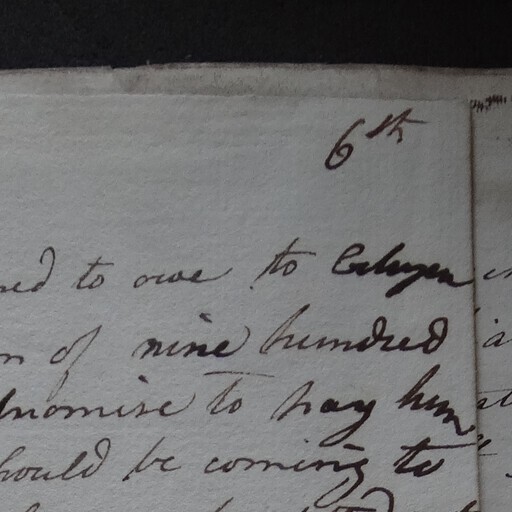 6th
ed to owe to Citizen
of nine hundred
promise to pay him
should be coming to